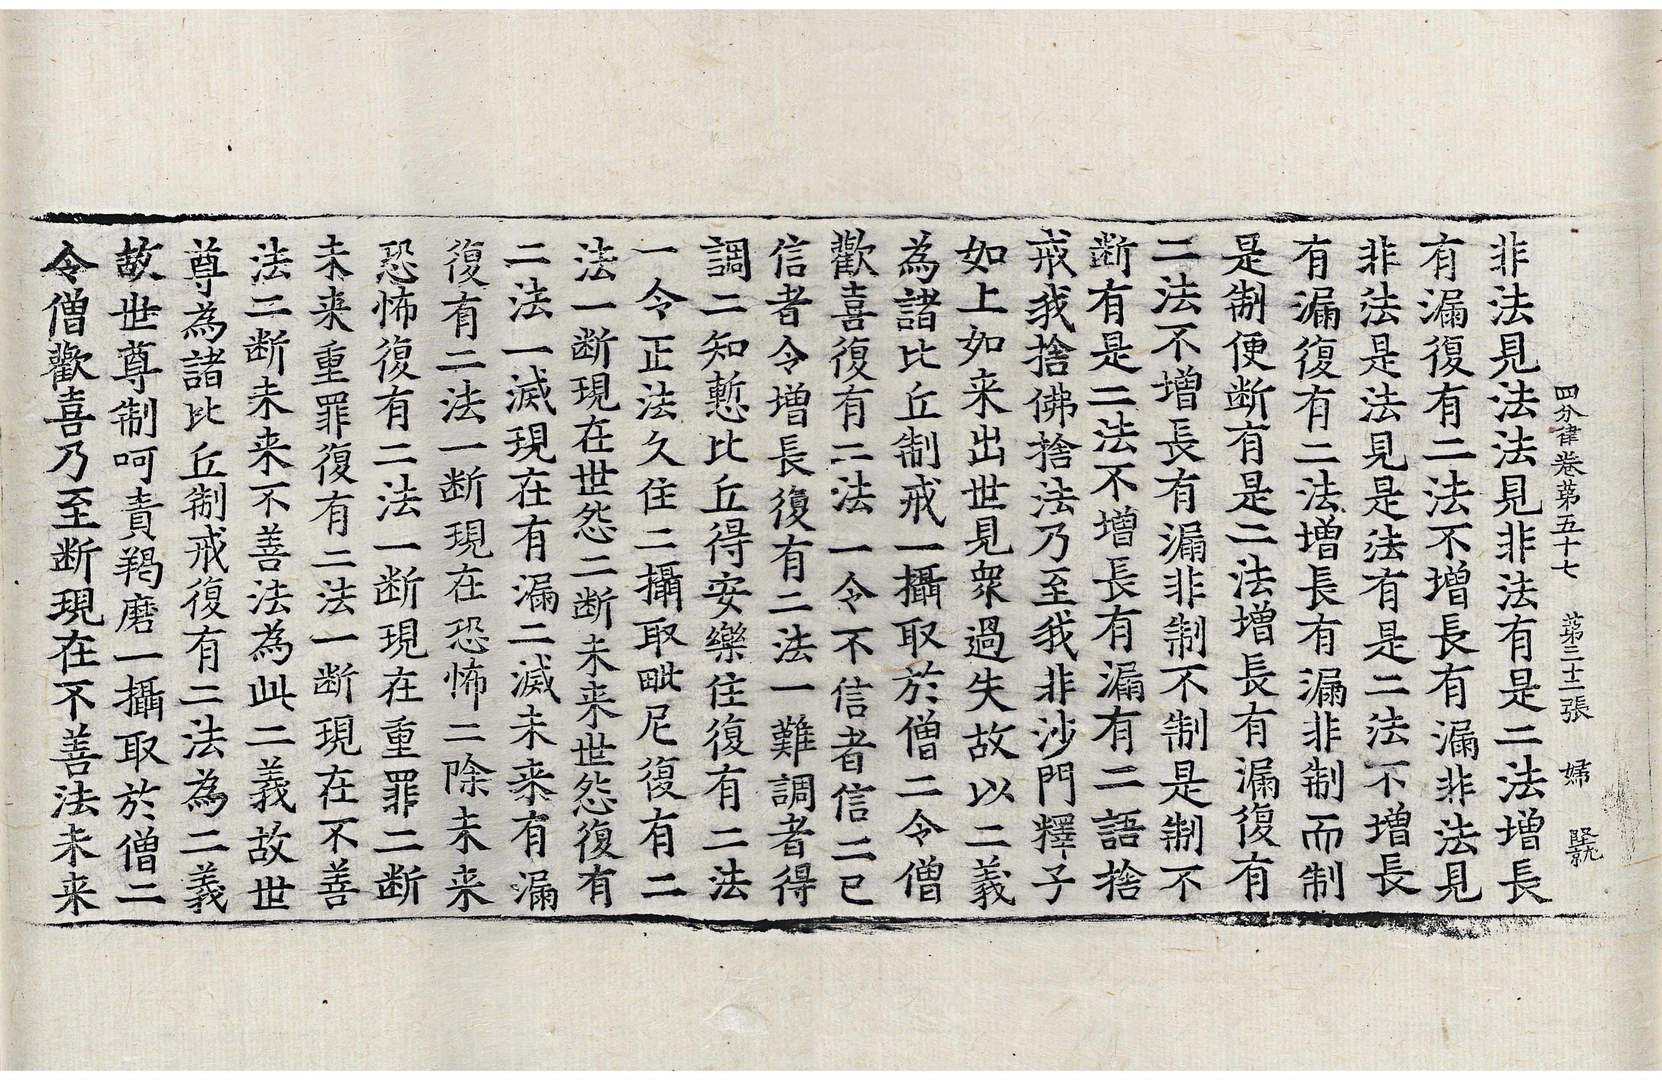 四分律卷苐五十七　苐三十二張　婦
非法見法法見非法有是二法增長
有漏復有二法不增長有漏非法見
非法是法見是法有是二法不增長
有漏復有二法增長有漏非制而制
是制便断有是二法增長有漏復有
二法不增長有漏非制不制是制不
断有是二法不增長有漏有二語捨
戒我捨佛捨法乃至我非沙門釋子
如上如来出世見衆過失故以二義
為諸比丘制戒一攝取於僧二令僧
歡喜復有二法一令不信者信二已
信者令增長復有二法一難調者得
調二知慙比丘得安樂住復有二法
一令正法久住二攝取毗尼復有二
法一断現在世怨二断未来世怨復有
二法一滅現在有漏二滅未来有漏
復有二法一断現在恐怖二除未来
恐怖復有二法一断現在重罪二断
未来重罪復有二法一断現在不善
法二断未来不善法為此二義故世
尊為諸比丘制戒復有二法為二義
故世尊制呵責羯磨一攝取於僧二
令僧歡喜乃至断現在不善法未来